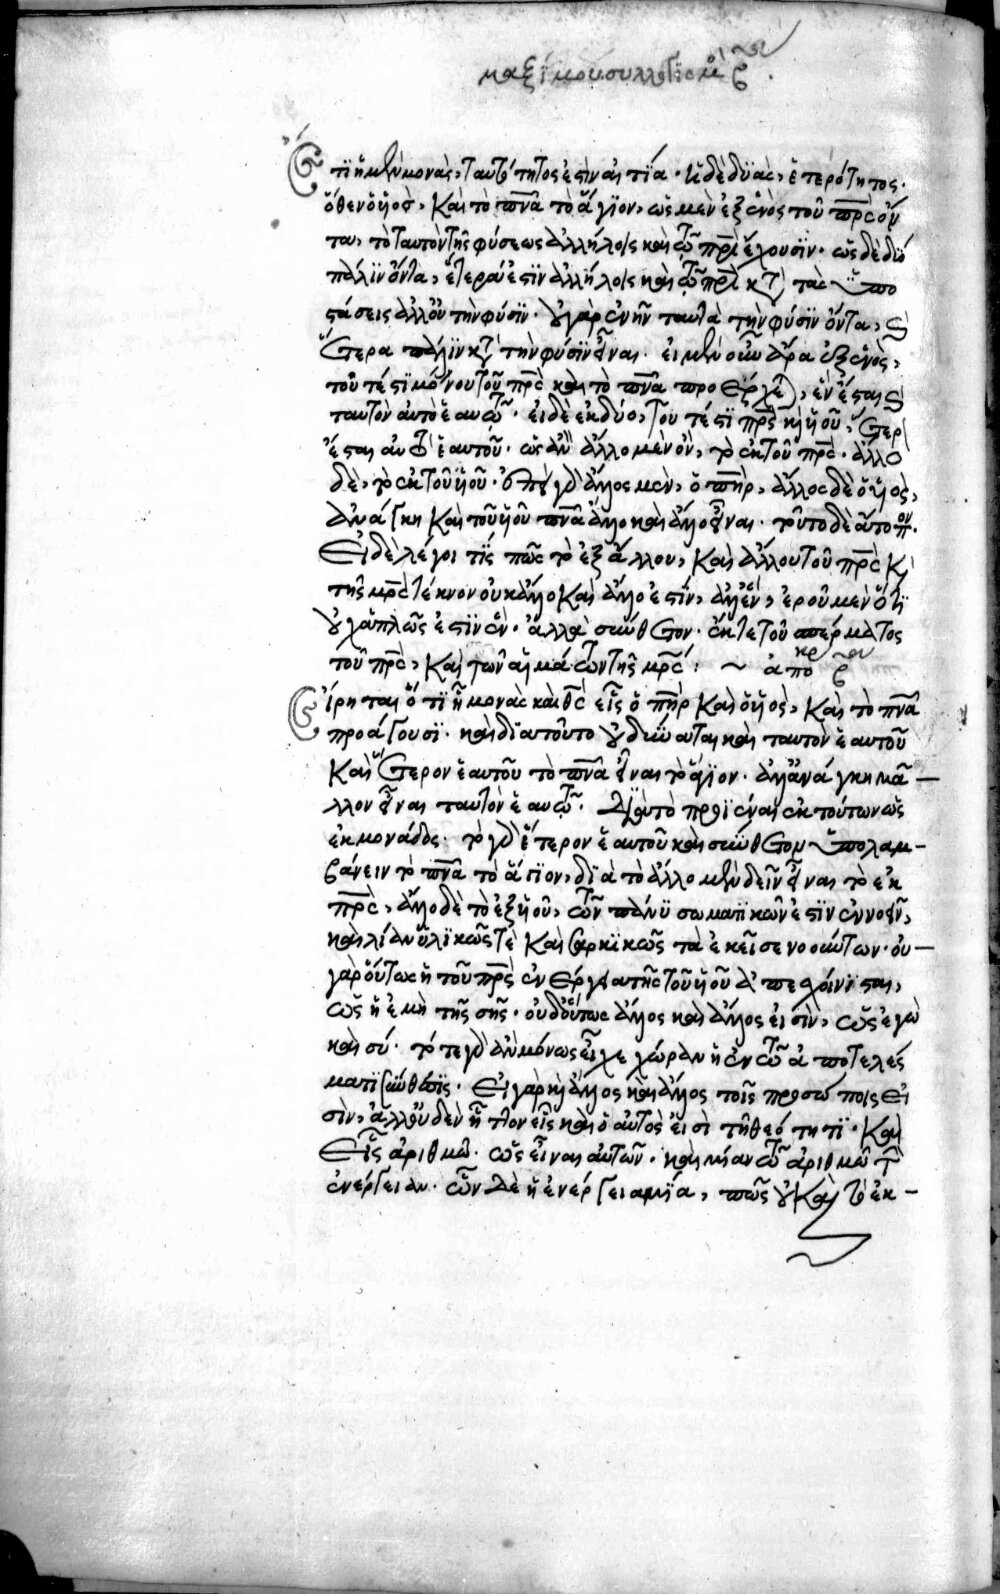 μαξίμου συλλογισμὸς β ον.
Ἔτι ἡ μὲν μονὰς, ταυτότητος ἐστὶν αἰτία· ἡ δὲ δυὰς, ἑτερότητος.
ὅθεν ὁ υἱὸς, Καὶ τὸ πνα τὸ ἅγιον, ὡς μὲν ἐξ ἑνὸς τοῦ πρς ὄν
τα, τὸ ταυτὸν τῆς φύσεως ἀλλήλοις καὶ τῷ πρι ἔχουσιν· ὡς δὲ δύο
πάλιν ὄντα, ἕτερα ἐστὶν ἀλλήλοις καὶ τῷ πρι κατὰ τὰς ὑπο
στάσεις ἀλλ' οὐ τὴν φύσιν· οὐ γὰρ ἐνῆν ταυτὰ τὴν φύσιν ὄντα, καὶ
ἕτερα πάλιν κατὰ τὴν φύσιν εἶναι. εἰ μὲν οὖν ἄρα ἐξ ἑνὸς,
τουτέστι μόνου τοῦ πρς καὶ τὸ πνα προέρχεται, ἓν ἔσται καὶ
ταυτὸν αὐτὸ ἑαυτῷ. εἰ δὲ ἐκ δύο, τουτέστι πρς καὶ υἱοῦ, ἕτερον
ἔσται αὐτὸ ἑαυτοῦ. ὡς ἂν ἄλλο μὲν ὂν, τὸ ἐκ τοῦ πρς· ἄλλο
δὲ, τὸ ἐκ τοῦ υἱοῦ. ἐπεὶ γὰρ ἄλλος μὲν, ὁ πηρ, ἄλλος δὲ ὁ υἱὸς,
ἀνάγκη Καὶ τοῦ υἱοῦ πνα ἄλλο καὶ ἄλλο εἶναι. τοῦτο δὲ ἄτοπον.
Εἰ δὲ λέγοι τίς πῶς τὸ ἐξ ἄλλου, Καὶ ἄλλου τοῦ πρς Καὶ
τῆς μρς τέκνον οὐκ ἄλλο Καὶ ἄλλο ἐστὶν, ἀλλ' ἓν, ἐροῦμεν ὅτι
οὐχ ἁπλῶς ἐστὶν ἓν. ἀλλὰ σύνθετον. ἔκ τε τοῦ σπέρματος
τοῦ πρς, Καὶ τῶν αἱμάτων τῆς μρς: ~ ἀπόκρ β ον
Εἴρηται ὅτι ἡ μονὰς καὶ θς εἷς ὁ πηρ Καὶ ὁ υἱὸς, Καὶ τὸ πνα
προάγουσι. καὶ διατοῦτο οὐ δύναται καὶ ταυτὸν ἑαυτοῦ
Καὶ ἕτερον ἑαυτοῦ τὸ πνα εἶναι τὸ ἅγιον. ἀλλ' ἀνάγκη μᾶ–
λλον εἶναι ταυτὸν ἑαυτῷ. Διὰ τὸ προϊέναι ἐκ τούτων ὡς
ἐκ μονάδος. τὸ γὰρ ἕτερον ἑαυτοῦ καὶ σύνθετον ὑπολαμ–
βάνειν τὸ πνα τὸ ἅγιον, διὰ τὸ ἄλλο μὲν δεῖν εἶναι τὸ ἐκ
πρς, ἄλλο δὲ τὸ ἐξ υἱοῦ, τῶν πάνυ σωματικῶν ἐστὶν ἐννοεῖν,
καὶ λίαν ὑλικῶς τὲ Καὶ σαρκικῶς τὰ ἐκεῖσε νοούντων. οὐ–
γὰρ οὕτως ἡ τοῦ πρς ἐνέργεια τῆς τοῦ υἱοῦ ἀπεσχοίνισται,
ὡς ἡ ἐμὴ τῆς σῆς. οὐδ' οὕτως ἄλλος καὶ ἄλλος εἰσὶν, ὡς ἐγὼ
καὶ σύ. τότε γὰρ ἂν μόνως εἶχε χώραν ἡ ἐν τῷ ἀποτελές
ματι σύνθεσις. Εἰ γὰρ καὶ ἄλλος καὶ ἄλλος τοῖς προσώποις εἰ
σὶν, ἀλλ' οὐδὲν ἧττον εἷς καὶ ὁ αὐτὸς εἰσὶ τῇ θεότητι. Καὶ
Εἷς ἀριθμῷ. ὡς εἶναι αὐτῶν. καὶ μίαν τῷ ἀριθμῷ τὴν
ἐνέργειαν. ὧν δὲ ἡ ἐνέργεια μία, πῶς οὐ Καὶ τὸ ἐκ –